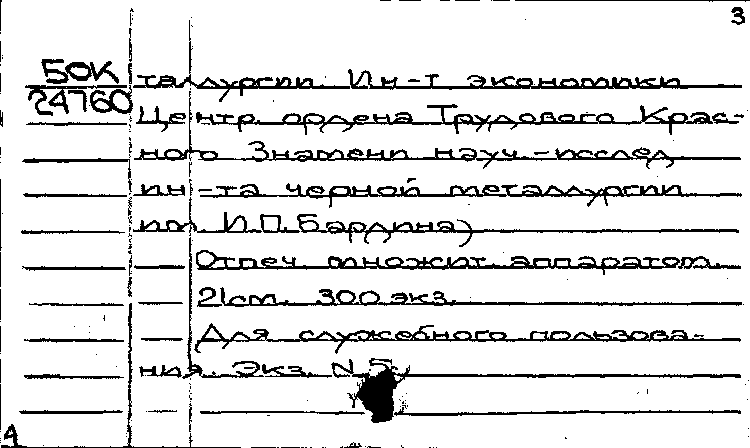 3
БОК
24760
таллургии. Ин-т экономики
Центр. ордена Трудового Крас-
ного Знамени науч.-исслед.
ин-та черной металлургии
им. И.П.Бардина)
Отпеч. множит. аппаратом.
21см. 300 экз.
Для служебного пользова-
ния. Экз. N 5
4